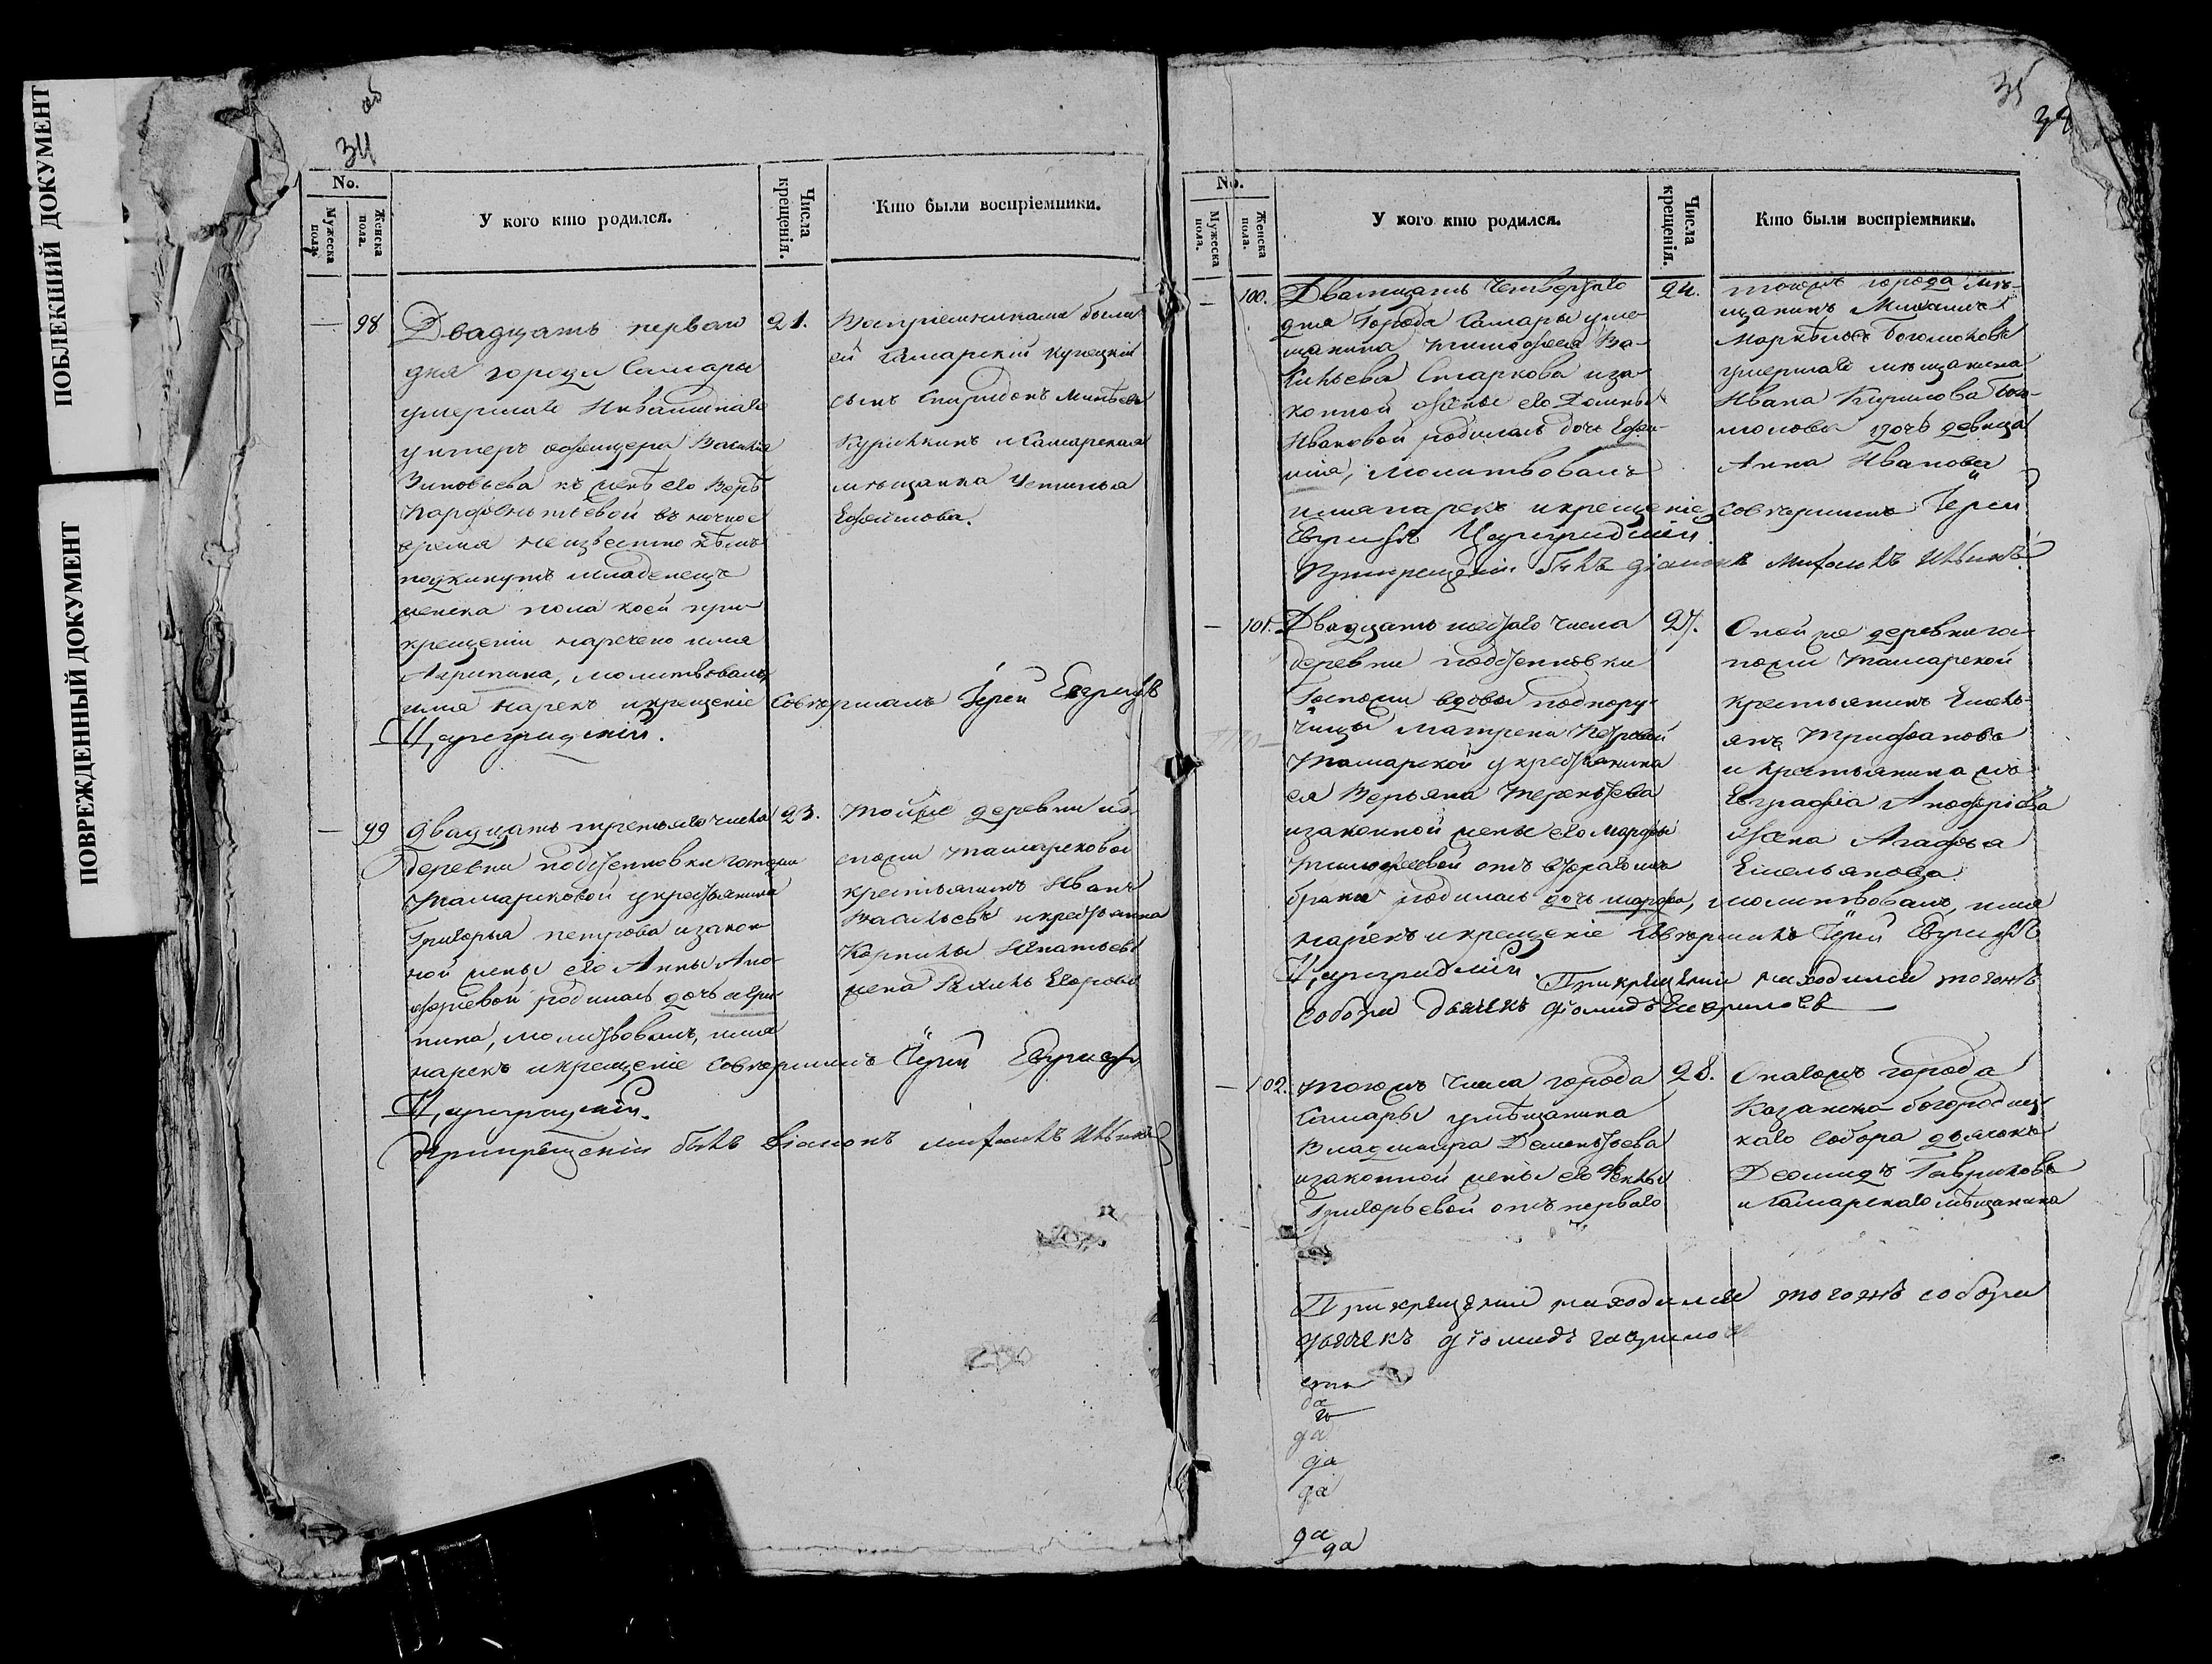 ПОБЛЕКШИЙ ДОКУМЕНТ
ПОВРЕЖДЕННЫЙ ДОКУМЕНТ
об
34
No.
Мужеска пола.
Женска пола.
У кого кто родился.
Числа крещенія.
Кто были воспріемники.
— 98
Двадцать перваго
дня города Самары
умершаго Инвалиднаго
унтеръ офицера Василія
Зиновьева къ женѣ его Верѣ
въ ночное
время неизвестно кѣмъ
подкинутъ младенецъ
женска пола коей при
крещеніи наречено имя
Агрипина, молитвовалъ,
имя нарекъ и крещеніе совершалъ Іерей Евграфъ
Цареградскій.
21.
Воспріемниками были
ей Самарскій купецкій
сынъ Спиридонъ
и Самарская
мѣщанка Устинья
Ефимова.
— 99
Двадцать третьяго числа
деревни подстепновки госпожи
Тамариковой у крестьянина
Григорья петрова и закон
ной жены его Анны Ано-
фріевой родилась дочь агри
пина, молитвовалъ, имя
нарекъ и крещеніе совершилъ Іерей Евграфъ
Цареградскій.
При крещеніи былъ діаконъ михаилъ Ильинъ
23.
Той же деревни го-
спожи тамариковой
крестьянинъ Иванъ
Васильевъ и крестьянина
Корнилы Игнатьева
жена Егорова
35
No.
Мужеска пола.
Женска пола.
У кого кто родился.
Числа крещенія.
Кто были воспріемники.
— 100.
Дватцать четвертаго
дня города Самары у мѣ-
щанина тимофея Ва-
сильева Старкова и за-
конной жены его Домны
Ивановой родилась дочь Евфи-
мія, молитвовалъ
имя нарекъ и крещеніе совершилъ Іерей
Евграфъ Цареградскій.
При крещеніи былъ діаконъ Михаилъ Ильинъ
24.
тогожъ города мѣ-
щанинъ Михаилъ
умершаго мѣщанина
Ивана Кирилова Бого-
молова дочь девица
Анна Иванова
— 101.
Двадцать шестаго числа
деревни подстепновки
Госпожи вдовы подпору-
чицы матрены Петровой
Тамарской у крестьянина
ея Верьяна Терентьева
и законной жены его марфы
тимофеевой отъ втораго
брака родилась дочь марфа, молитвовалъ, имя
нарекъ и крещеніе совершилъ Іерей Евграфъ
Цареградскій. При крещеніи находился тогожъ
собора дьячекъ діомидъ Гавриловъ
27.
Оной же деревни го-
спожи тамарской
крестьянинъ Емель-
янъ Трифановъ
и крестьянина
Евграфа Анофріева
жена Агафья
Емельянова.
— 102.
тогожъ числа города
Самары у мѣщанина
Владимира Дементьева
и законной жены его Феклы
Григорьевой отъ перваго
28.
Онагожъ города
Казанско богородиц-
каго Собора дьячокъ
Деомидъ Гавриловъ
и Самарскаго мѣщанина
При крещеніи находился тогожъ собора
дьячекъ діомидъ гаврилов
да
да
да
да
да
да